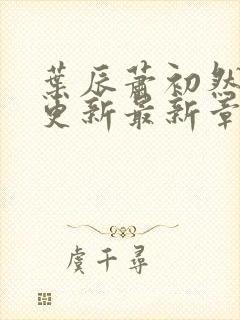 葉辰蕭初然
更新最新章
虞千尋